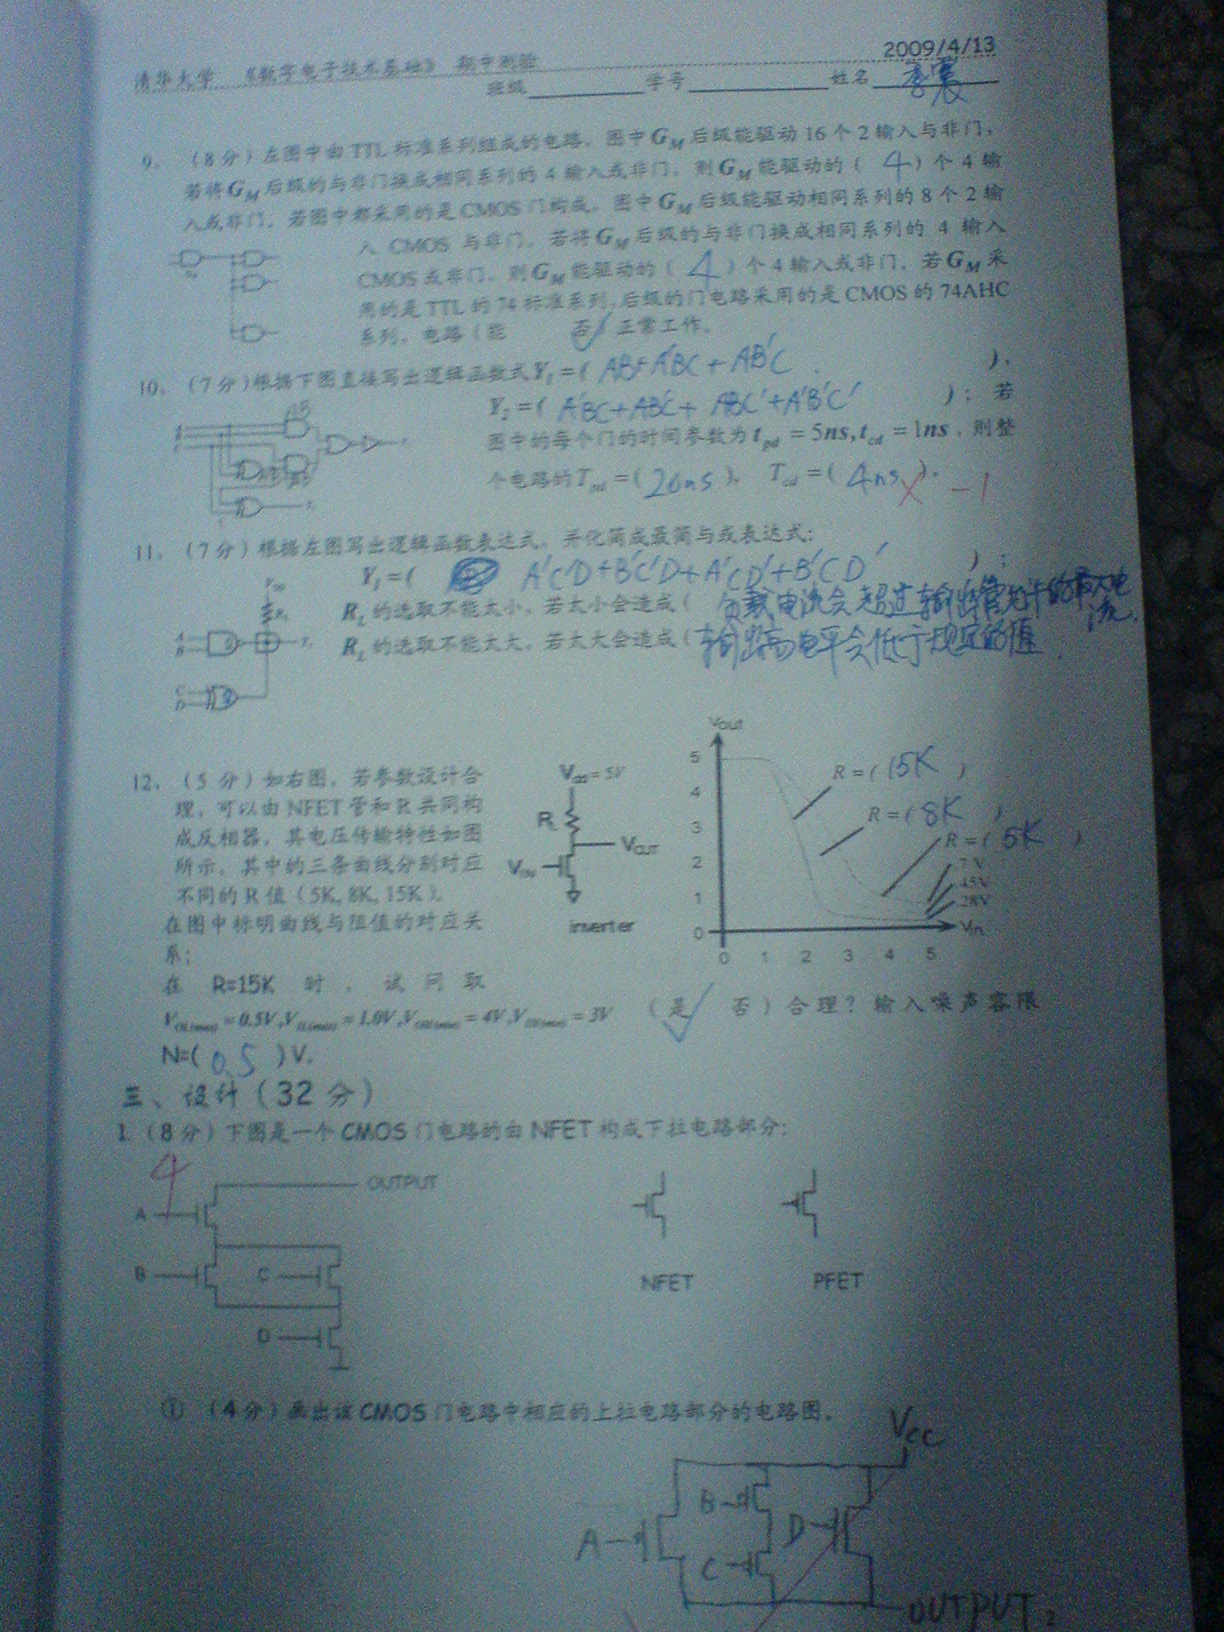 2009/4/13
清华大学 《数字电子技术基础》 期中测验
班级 学号 姓名 李震
9. (8分)左图中由TTL标准系列组成的电路，图中GM后级能驱动16个2输入与非门，
若将GM后级的与非门换成相同系列的4输入或非门，则GM能驱动的( 4 )个4输
入或非门。若图中都采用的是CMOS门构成，图中GM后级能驱动相同系列的8个2输
入CMOS与非门，若将GM后级的与非门换成相同系列的 4 输入
CMOS或非门，则GM能驱动的( 4 )个4输入或非门。若GM采
用的是TTL的74标准系列，后级的门电路采用的是CMOS的74AHC
系列，电路(能 否)正常工作。
10. (7分)根据下图直接写出逻辑函数式Y1=( AB+A'BC+AB'C )，
Y2=( A'BC+AB'C+ABC'+A'B'C' )；若
图中的每个门的时间参数为tpd=5ns,tcd=1ns，则整
个电路的Tpd=(20ns)、Tcd=( 4ns )。 -1
11. (7分)根据左图写出逻辑函数表达式，并化简成最简与或表达式：
Y1=( A'C'D+B'C'D+A'CD'+B'CD' )；
RL的选取不能太小，若太小会造成( 负载电流会超过输出管允许的最大电流
RL的选取不能太大，若太大会造成( 输出高电平会低于规定的值
A
B
C
D
12. (5分)如右图，若参数设计合
理，可以由NFET管和R共同构
成反相器，其电压传输特性如图
所示，其中的三条曲线分别对应
不同的R值(5K, 8K, 15K)。
在图中标明曲线与阻值的对应关
系；
在 R=15K 时，试问取
VOL(max)=0.5V,VIL(max)=1.0V,VOH(min)=4V,VIH(min)=3V (是 否)合理？输入噪声容限
N=( 0.5 )V.
VDD=5V
RL
VOUT
VIN
inverter
Vout
5
4
3
2
1
0
0 1 2 3 4 5
Vin
R=( 15K )
R=( 8K )
R=( 5K )
三、设计(32分)
1. (8分)下图是一个CMOS门电路的由NFET构成下拉电路部分：
4
OUTPUT
A
B C
D
NFET PFET
① (4分)画出该CMOS门电路中相应的上拉电路部分的电路图。
VCC
A B D
C
OUTPUT
2